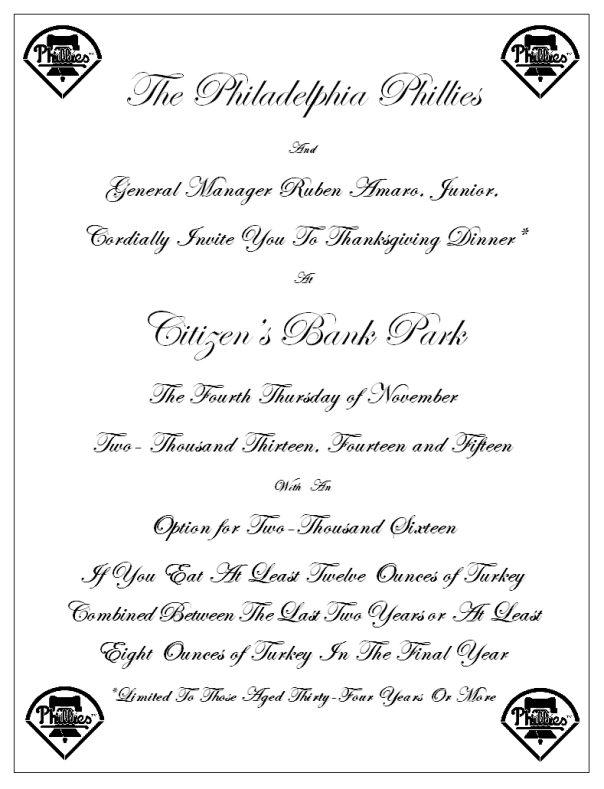 Phillies Phillies
The Philadelphia Phillies
And
General Manager Ruben Amaro, Junior,
Cordially Invite You To Thanksgiving Dinner*
At
Citizen's Bank Park
The Fourth Thursday of November
Two-Thousand Thirteen, Fourteen and Fifteen
With An
Option for Two-Thousand Sixteen
If You Eat At Least Twelve Ounces of Turkey
Combined Between The Last Two Years or At Least
Eight Ounces of Turkey In The Final Year
*Limited To Those Aged Thirty-Four Years Or More
Phillies Phillies